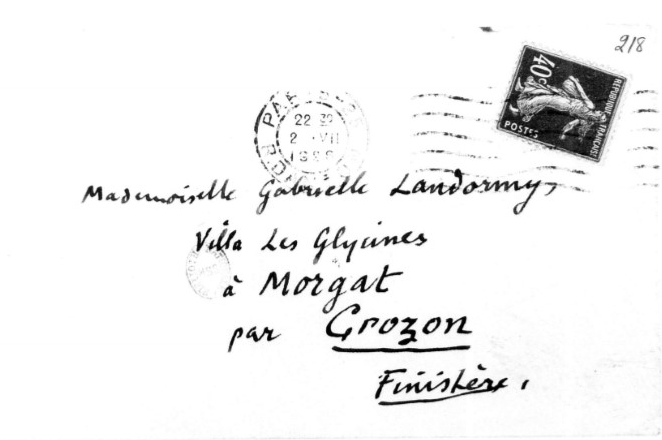 218
40c
REPUBLIQUE FRANÇAISE
POSTES
22 32
Mademoiselle Gabrielle Landormy,
Villa Les Glycines
à Morgat
par Crozon
Finistère.